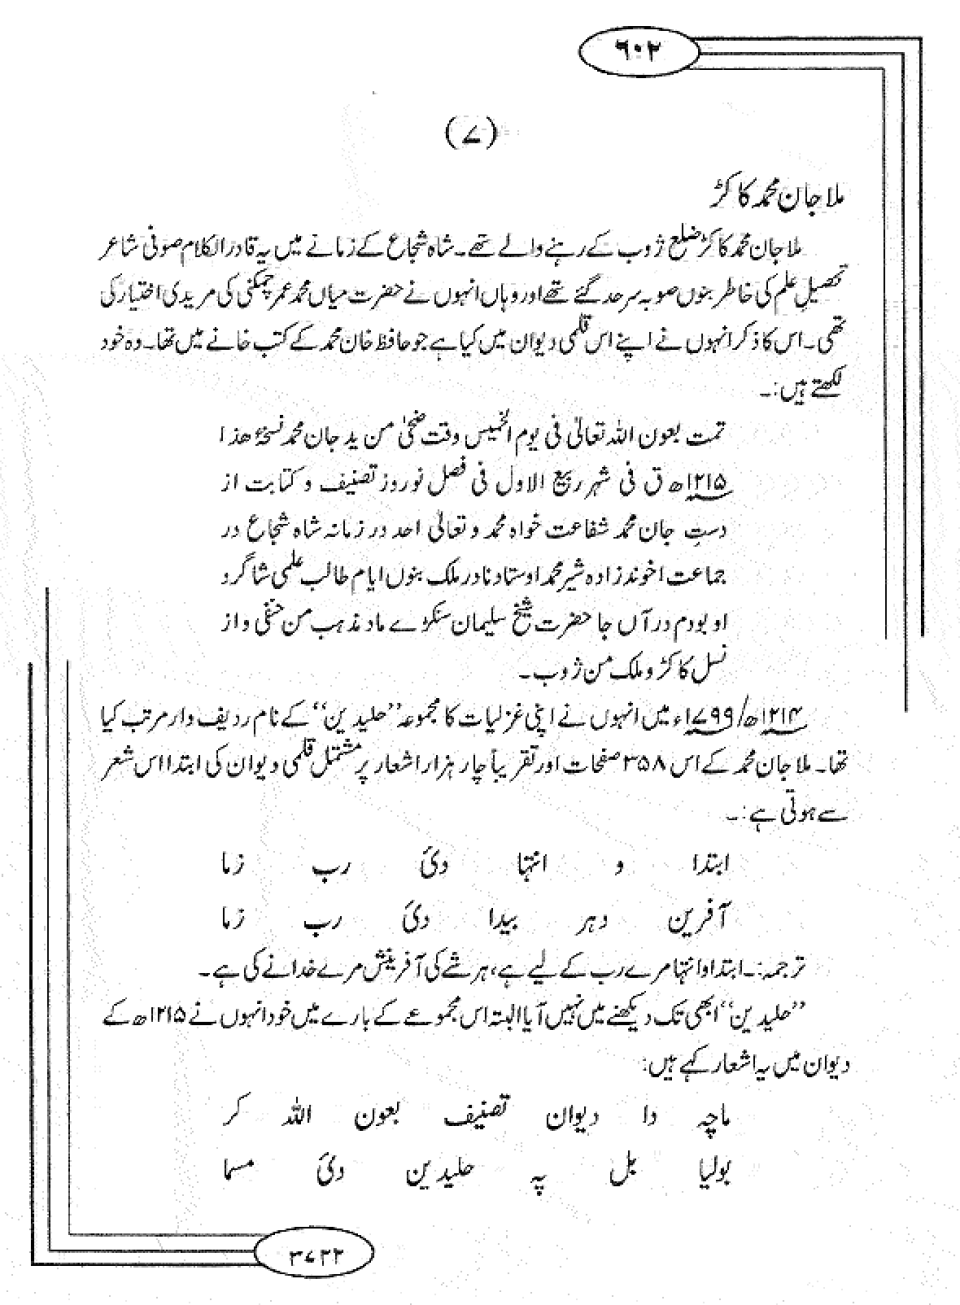 ۶۰۲
(۷)
ملا جان محمد کاکڑ
ملا جان محمد کاکڑ ضلع ژوب کے رہنے والے تھے۔ شاہ شجاع کے زمانے میں یہ قادر الکلام صوفی شاعر
تحصیلِ علم کی خاطر بنوں صوبہ سرحد گئے تھے اور وہاں انہوں نے حضرت میاں محمد عمر چمکنی کی مریدی اختیار کی
تھی۔ اس کا ذکر انہوں نے اپنے اس قلمی دیوان میں کیا ہے جو حافظ خان محمد کے کتب خانے میں تھا۔ وہ خود
لکھتے ہیں:۔
تمت بعون اللہ تعالیٰ فی یوم الخمیس وقت ضحیٰ من ید جان محمد نسخۂ ھذا
۱۲۱۵ھ ق فی شہر ربیع الاول فی فصل نوروز تصنیف و کتابت از
دستِ جان محمد شفاعت خواہ محمد و تعالیٰ احد در زمانہ شاہ شجاع در
جماعت اخوند زادہ شیر محمد اوستاد نادر ملک بنوں ایام طالب علمی شاگرد
او بودم در آں جا حضرت شیخ سلیمان سنکڑے ماد مذہب من حنفی و از
نسل کاکڑ و ملک من ژوب۔
۱۲۱۴ھ/۱۷۹۹ء میں انہوں نے اپنی غزلیات کا مجموعہ ”حلیدین“ کے نام ردیف وار مرتب کیا
تھا۔ ملا جان محمد کے اس ۳۵۸ صفحات اور تقریباً چار ہزار اشعار پر مشتمل قلمی دیوان کی ابتدا اس شعر
سے ہوتی ہے:۔
ابتدا و انتہا دئ رب زما
آفرین دہر بیدا دئ رب زما
ترجمہ:۔ ابتدا و انتہا مرے رب کے لیے ہے، ہر شے کی آفرینش مرے خدا نے کی ہے۔
”حلیدین“ ابھی تک دیکھنے میں نہیں آیا البتہ اس مجموعے کے بارے میں خود انہوں نے ۱۲۱۵ھ کے
دیوان میں یہ اشعار کہے ہیں:
ماچہ دا دیوان تصنیف بعون اللہ کر
بولیا بل پہ حلیدین دئ مسما
۳۷۲۲